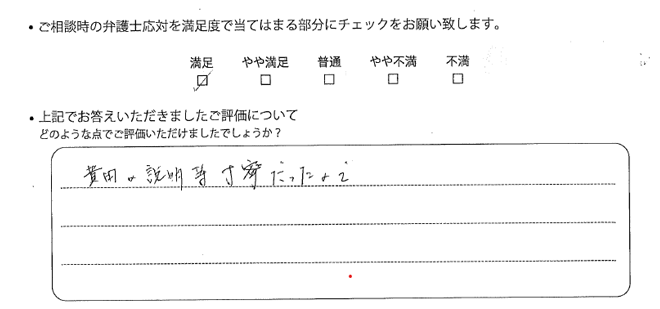 • ご相談時の弁護士応対を満足度で当てはまる部分にチェックをお願い致します。
満足 やや満足 普通 やや不満 不満
• 上記でお答えいただきましたご評価について
どのような点でご評価いただけましたでしょうか？
費用の説明等丁寧だったので